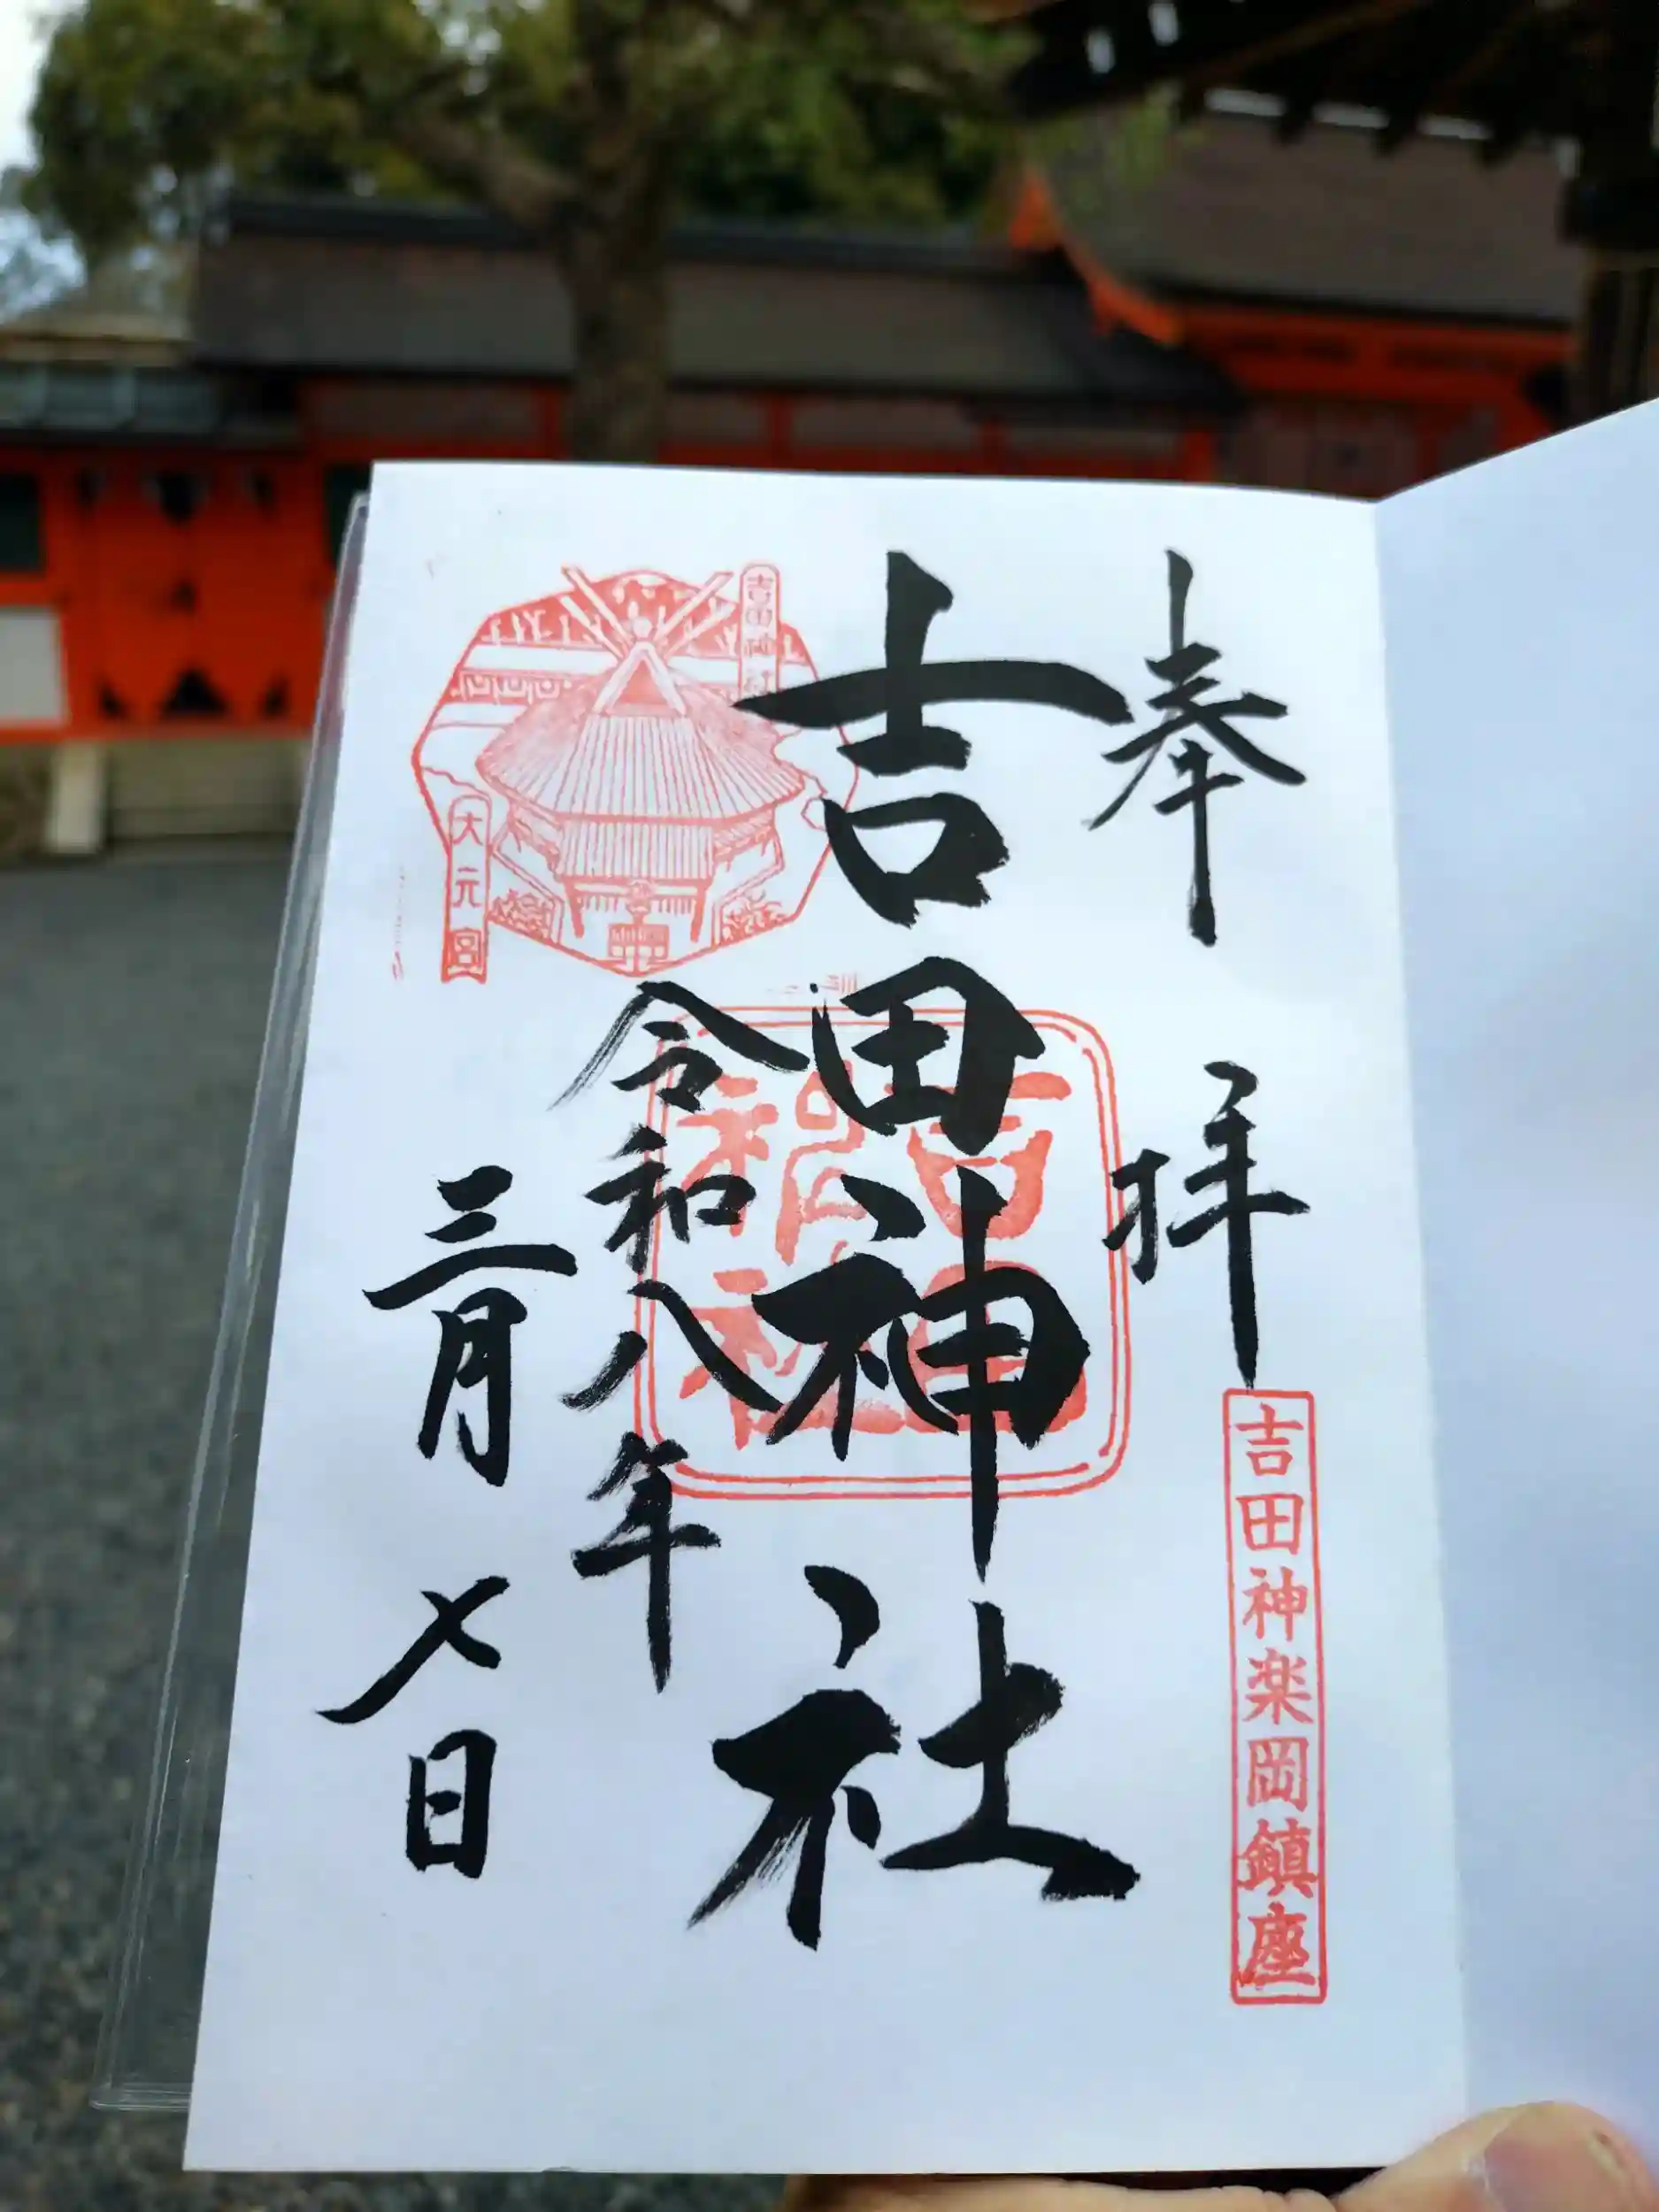 奉拝
吉田神楽岡鎮座
吉田神社
吉田神社
令和八年
三月七日
吉田神社
大元宮